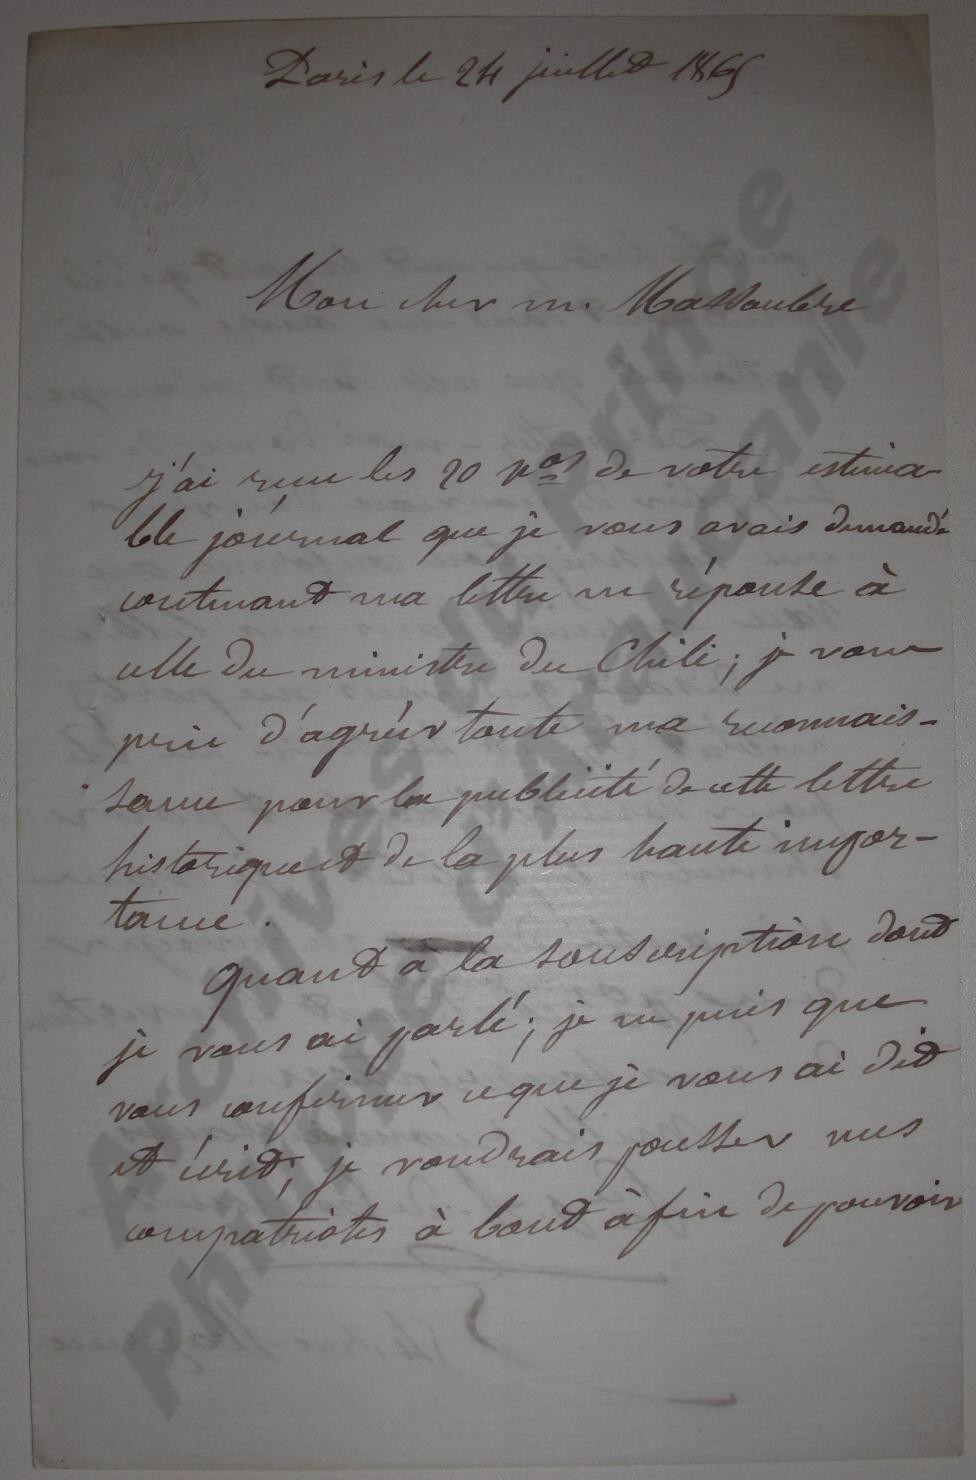 Paris le 24 juillet 1865
Mon cher m. Massoubre
j'ai reçu les 20 Nos de votre estima-
ble journal que je vous avais demandé
contenant ma lettre en réponse à
celle du ministre du Chili ; je vous
prie d'agréer toute ma reconnais-
sance pour la publicité de cette lettre
historique et de la plus haute impor-
tance.
quant à la souscription dont
je vous ai parlé ; je ne puis que
vous confirmer ce que je vous ai dit
et écrit ; je voudrais pousser nos
compatriotes à bout à fin de pouvoir
Archives du Prince
Philippe d'Araucanie